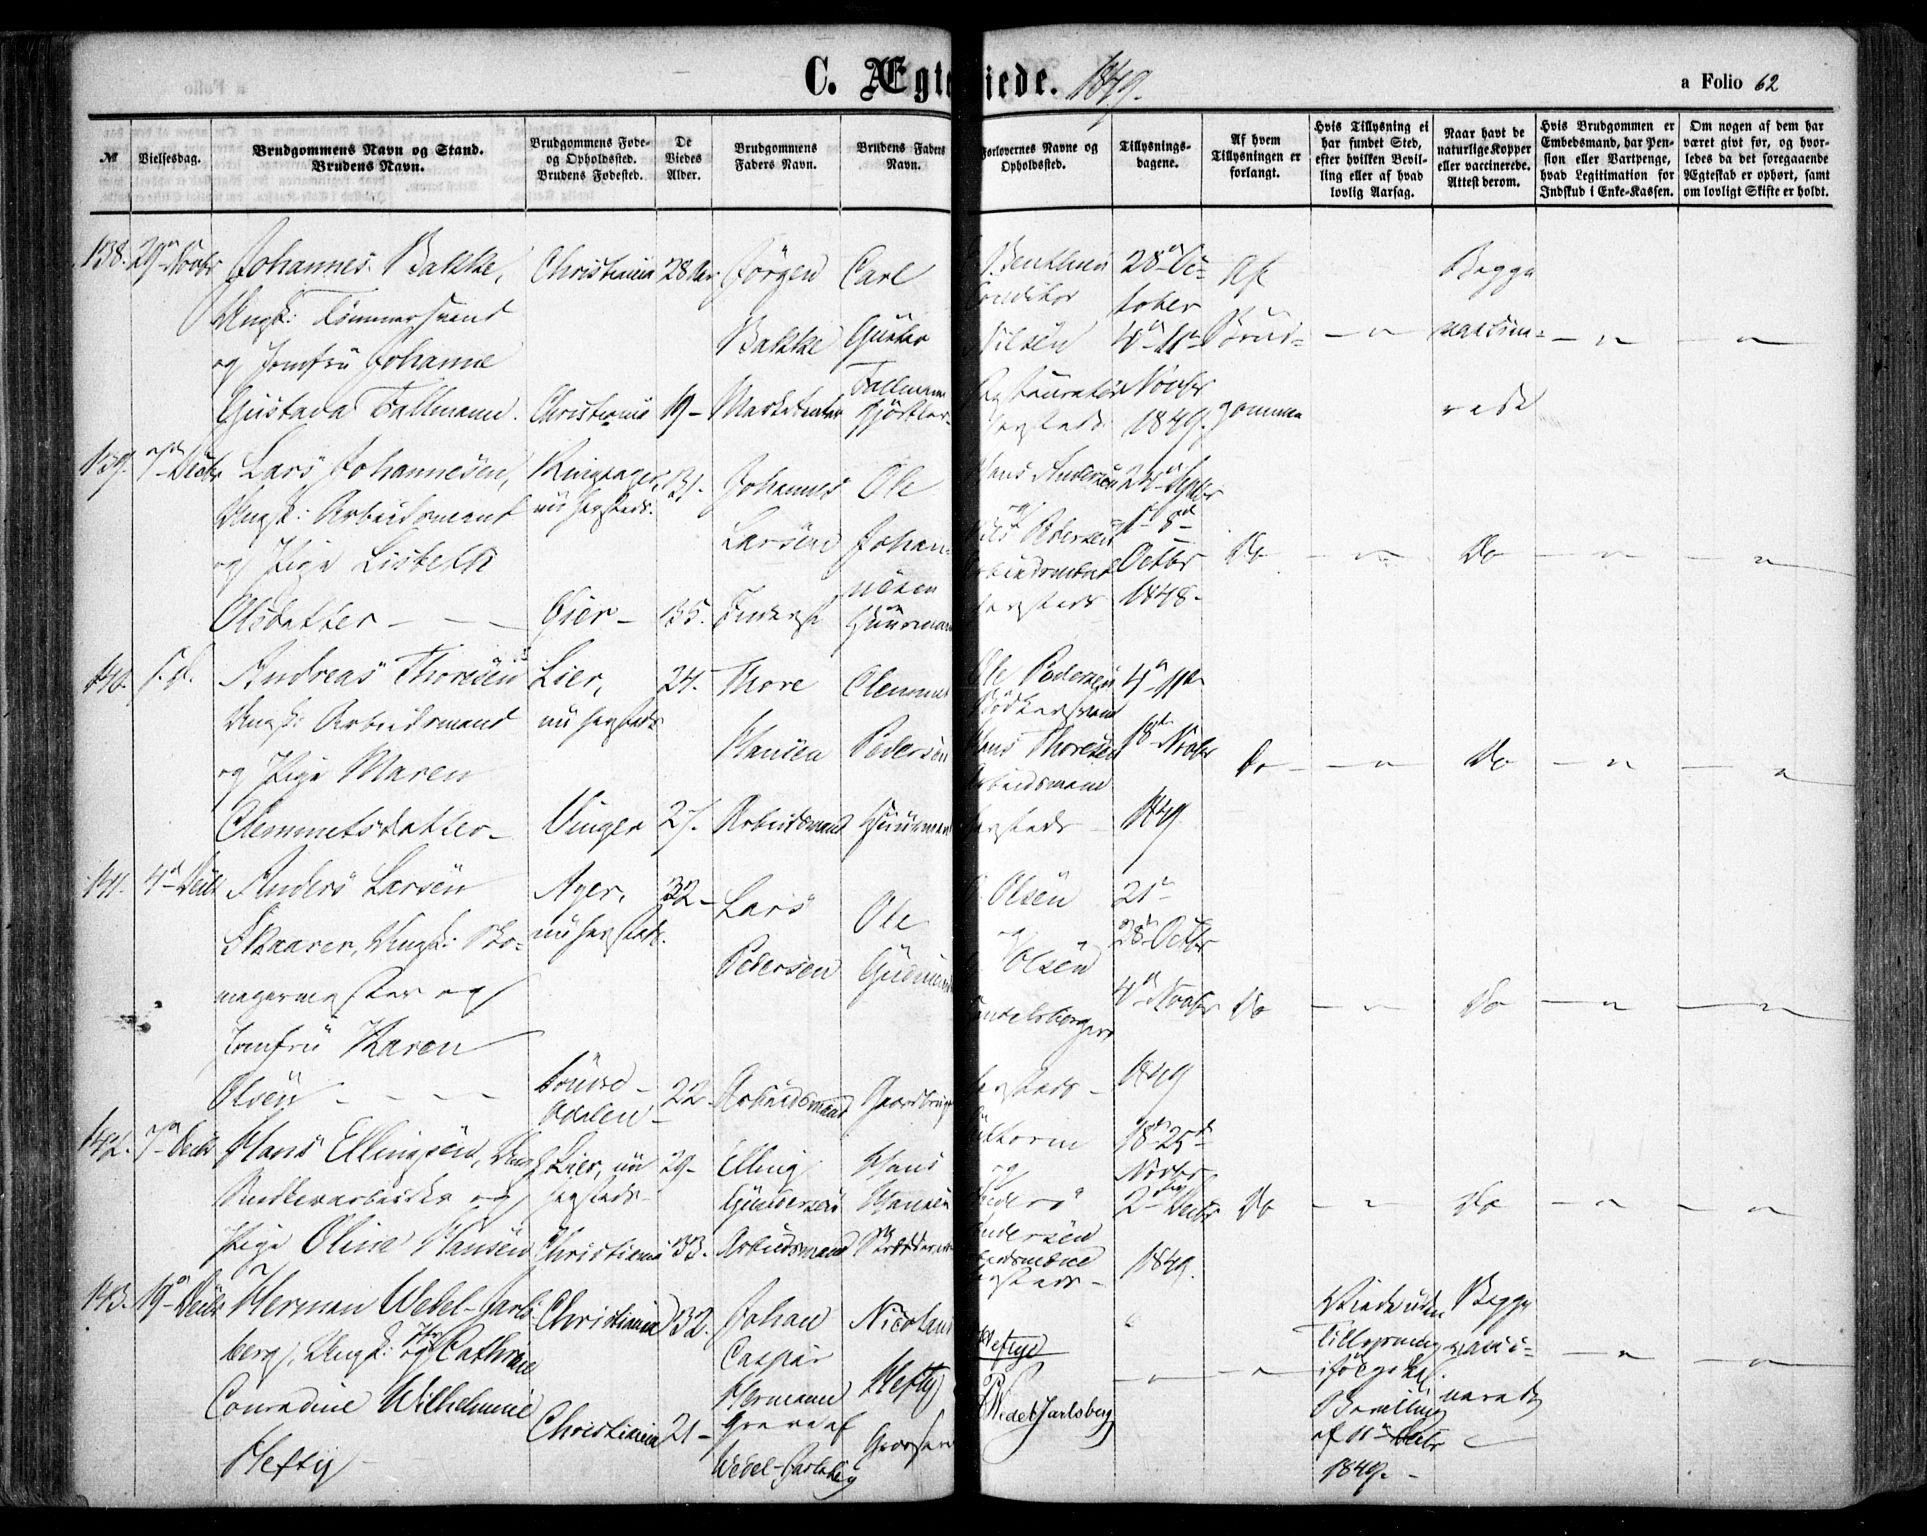 C. Ægte iede. 1849.
a Folio 62
№
Vielsesdag.
Brudgommens Navn og Stand.
Brudens Navn.
Brudgommens Føde-
og Opholdssted.
Brudens Fødested.
De
Viedes
Alder.
Brudgommens
Faders Navn.
Brudens Faders
Navn.
Forlovernes Navne og
Opholdssted.
Tillysnings-
dagene.
Af hvem
Tillysningen er
forlangt.
Hvis Tillysning ei
har fundet Sted,
efter hvilken Bevil-
ling eller af hvad
lovlig Aarsag.
Naar havt de
naturlige Kopper
eller vaccinerede.
Attest derom.
Hvis Brudgommen er
Embedsmand, har Pen-
sion eller Vartpenge,
hvad Legitimation for
Indskud i Enke-Kassen.
Om nogen af dem har
været givt før, og hvor-
ledes da det foregaaende
Ægteskab er ophørt, samt
om lovligt Skifte er holdt.
138. 29 Novbr
Johannes Bakke,
Ungk: Tømmersvend
og Jomfru Johanne
Gustava Fallmann.
Christiania
Christiania
28 Aar
19 -
Jørgen
Bakke
Carl
Gustav
Fallmann
28 Oc-
tober
4 11
Novbr
1849.
Af
Brud-
gommen
Begge
vaccine-
rede
139. 7 Decbr
Lars Johannesen,
Ungk: Arbeidsmand
og Pige Lisbeth
Olsdatter - - -
Ringsager,
nu her steds.
Øier -
31.
35.
Johannes
Larsen
Ole
Johan-
nesen
Huusmand
Hans Andersen
og
Pedersen
Arbeidsmænd
hersteds
24 Septbr
1 8
Octbr
1848.
Do
Do
140. s. d.
Andreas Thoresen
Ungk: Arbeidsmand
og Pige Maren
Clemmetsdatter -
Lier,
nu hersteds
Vinger
24.
27.
Thore
Hansen
Arbeidsmand
Clemmet
Pedersen
Huusmand
Ole Pedersen
Hans Thoresen
Arbeidsmænd
hersteds -
4 11
18 Novbr
1849
Do
Do
141. 4 Decbr
Anders Larsen
Skaarer, Ungk: Sko-
magermester og
Jomfru Karen
Olsen - - - -
Ager,
nu hersteds.
Søndre -
Odalen -
32 -
22 -
Lars
Pedersen
Arbeidsmand
Ole
Gaardbruger
Olsen
og
Olsen
Handelsborgere
hersteds -
21
28 Octbr
4 Novbr
1849
Do
Do
142. 7 Decbr
Hans Ellingsen, Ungk
og
Pige Oline Hansen
Lier, nu
hersteds -
Christiania
29 -
33.
Elling
Gundersen
Arbeidsmand
Hans
Hansen
og
Andersen
hersteds -
18 25
Novbr
2 Decbr
1849.
Do
Do
143. 19 Decbr
Herman Wedel-Jarls-
berg, Ungk: og Cathrine
Conradine Wilhelmine
Hefty
Christiania
Christiania
32.
21 -
Johan
Caspar
Hermann
Greve af
Wedel-Jarlsberg
Nicolaus
Hefty
Grosserer
Heftye
Wedel Jarlsberg
Viede uden
Tillysning
ifølge kgl.
Bevilling
af 11 Decbr
1849. -
Begge
vacci-
nerede